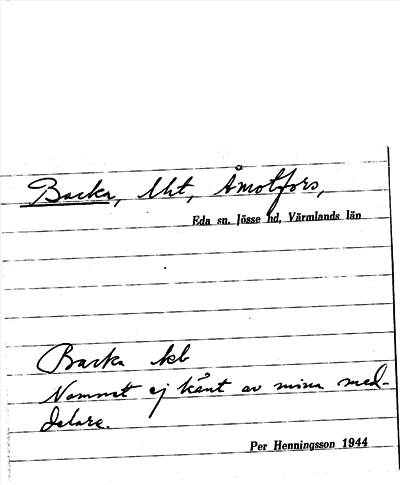 Backa, lht, Åmotfors,
Eda sn. Jösse hd, Värmlands län
Backa
Namnet ej känt av mina med-
delare.
Per Henningsson 1944